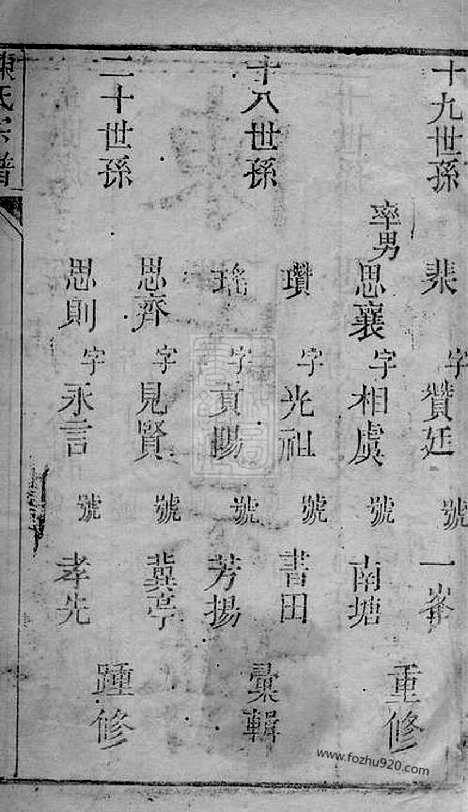 十九世孫 棐 字贊廷 號一峯 重修
率男思襄 字相虞 號南塘
十八世孫 瓚 字光祖 號書田 彙輯
瑤 字貢賜 號芳揚
二十世孫 思齊 字見賢 號冀亭 踵修
思則 字永言 號孝先
陳氏宗譜
www.fozhu920.com